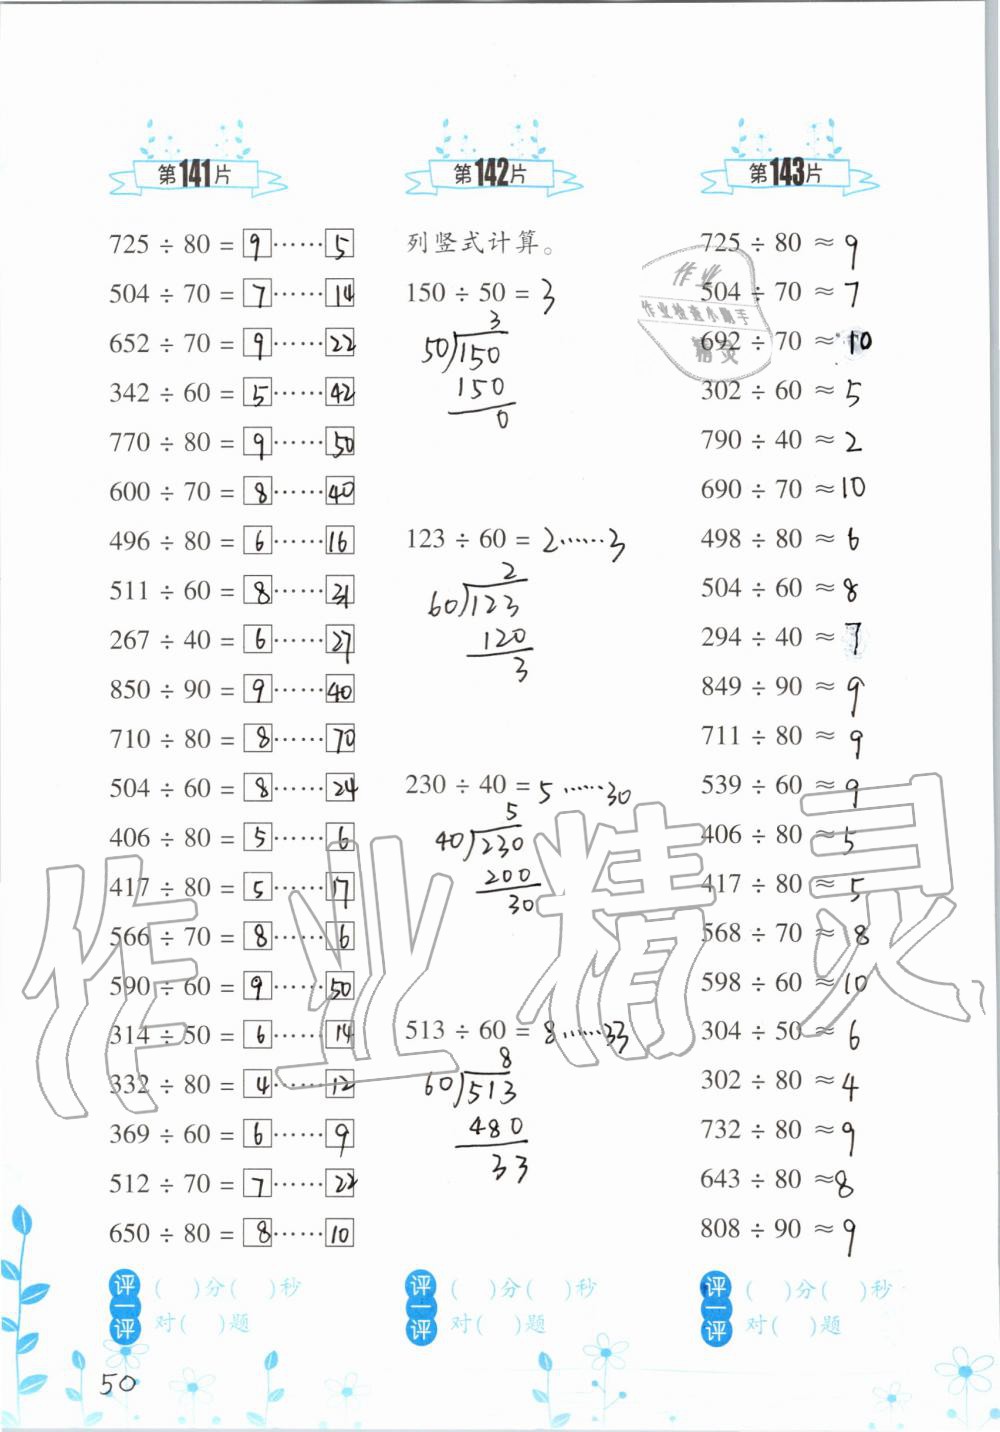 第141片
725 ÷ 80 = 9……5
504 ÷ 70 = 7……14
652 ÷ 70 = 9……22
342 ÷ 60 = 5……42
770 ÷ 80 = 9……50
600 ÷ 70 = 8……40
496 ÷ 80 = 6……16
511 ÷ 60 = 8……31
267 ÷ 40 = 6……27
850 ÷ 90 = 9……40
710 ÷ 80 = 8……70
504 ÷ 60 = 8……24
406 ÷ 80 = 5……6
417 ÷ 80 = 5……17
566 ÷ 70 = 8……6
590 ÷ 60 = 9……50
314 ÷ 50 = 6……14
332 ÷ 80 = 4……12
369 ÷ 60 = 6……9
512 ÷ 70 = 7……22
650 ÷ 80 = 8……10
评一评
( )分( )秒
对( )题
第142片
列竖式计算。
150 ÷ 50 = 3
3
50)150
150
0
123 ÷ 60 = 2……3
2
60)123
120
3
230 ÷ 40 = 5……30
5
40)230
200
30
513 ÷ 60 = 8……33
8
60)513
480
33
评一评
( )分( )秒
对( )题
第143片
725 ÷ 80 ≈ 9
504 ÷ 70 ≈ 7
692 ÷ 70 ≈ 10
302 ÷ 60 ≈ 5
790 ÷ 40 ≈ 2
690 ÷ 70 ≈ 10
498 ÷ 80 ≈ 6
504 ÷ 60 ≈ 8
294 ÷ 40 ≈ 7
849 ÷ 90 ≈ 9
711 ÷ 80 ≈ 9
539 ÷ 60 ≈ 9
406 ÷ 80 ≈ 5
417 ÷ 80 ≈ 5
568 ÷ 70 ≈ 8
598 ÷ 60 ≈ 10
304 ÷ 50 ≈ 6
302 ÷ 80 ≈ 4
732 ÷ 80 ≈ 9
643 ÷ 80 ≈ 8
808 ÷ 90 ≈ 9
评一评
( )分( )秒
对( )题
作业
作业检查小助手
精灵
作业精灵
50